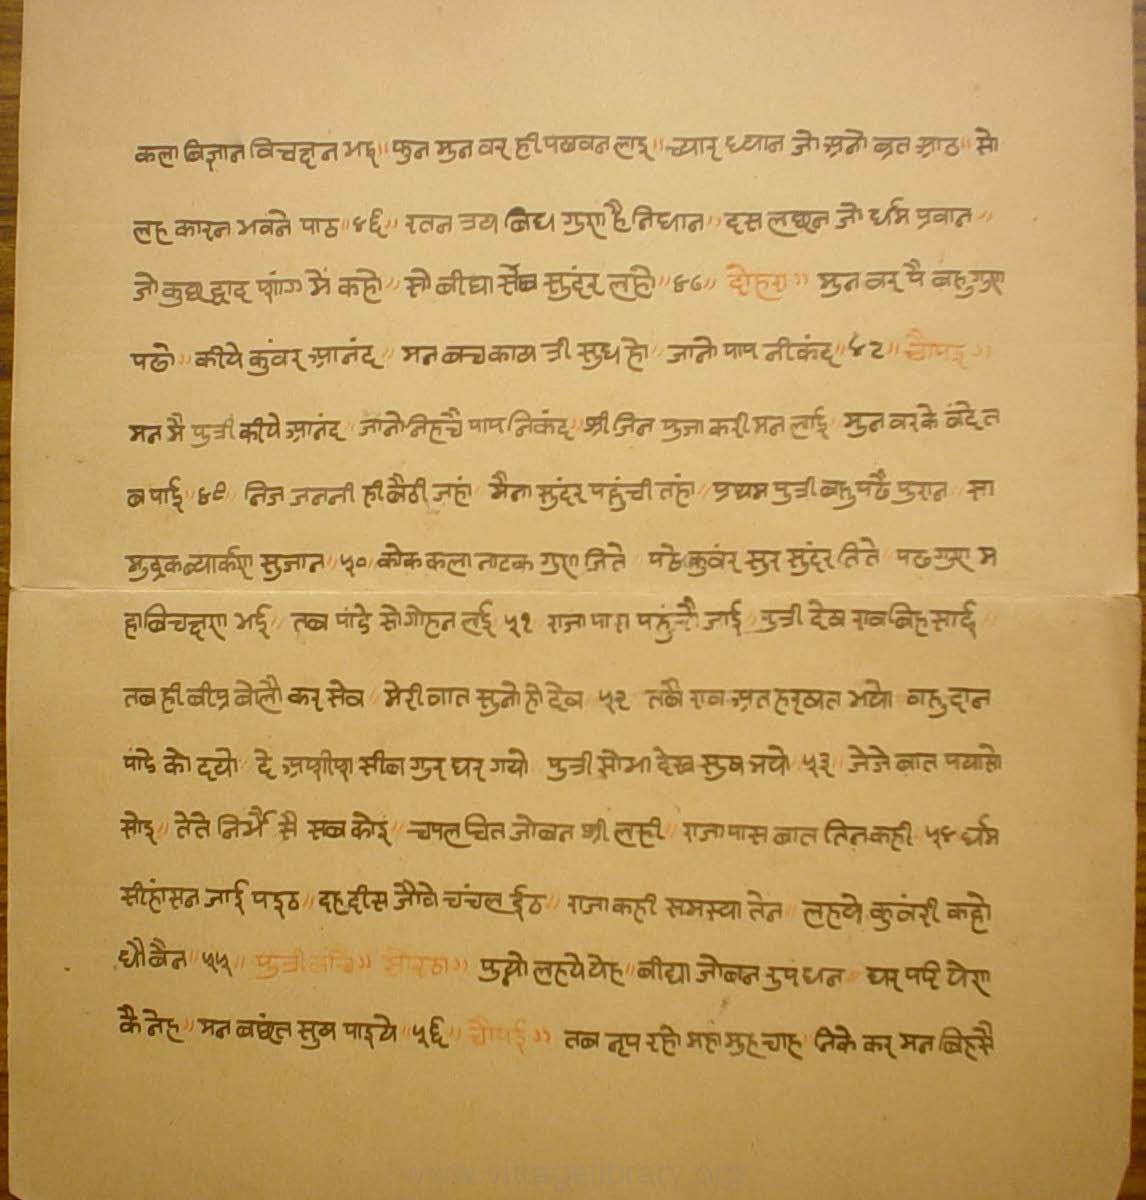 कला बिज्ञान विचक्षन भइ॥ फुन मुन वर ही पढवन लाइ॥ च्यार ध्यान जो सुनो ब्रत आठ॥ सो
लह कारन भवने पाठ॥४६॥ रतन त्रय बिध गुरा है निधान॥ दस लछन जो र्धम प्रवान॥
जो कुछ द्वाद शांग में कहो॥ सो बीद्या र्सब सुंदर लहो॥४७॥ दोहरा॥ मुन वर पै बहु गुरा
पढो॥ कीये कुंवर आनंद॥ मन बच काय त्री सुध हो॥ जानो पाप नीकंद॥४८॥ चौपइ॥
मन मै पुत्री कीये आनंद॥ जानो निहचै पाप निकंद॥ श्री जिन पुजा करी मन लाई॥ मुन वर के बंदे त
ब पाई॥४९॥ निज जननी ही बैठी जहां॥ मैना सुंदर पहुंची तहां॥ प्रथम पुत्री बहु पढै पुरान॥ सा
मुद्रक ब्यार्करा सुजान॥५०॥ कोक कला नाटक गुरा जिते॥ पढे कुवंर सुर सुंदर तिते॥ पढ गुरा म
हा बिचक्षरा भई॥ तब पांडे सो गोहन लई ५१ राजा पास पहुंचै जाई॥ पुत्री देख राव बिह साई॥
तब ही बीप्र बोलौ कर सेव॥ मेरी बात सुनो हो देव ५२ तबै राव अत हरखत भयो बाहु दान
पांडे को दयो॥ दे अशीश सीब गुर घर गयो॥ पुत्री सोभा देख सुख भयो ५३ जेजे बात पयासो
सोइ॥ तेते निर्भै सै सब कोइ॥ चपल चित जोबन श्री लही॥ राजा पास बात तिन कही ५४ र्धम
सीहांसन जाई पइठ॥ दह दीस जौवे चंचल ईठ॥ राजा कही समस्या तेन॥ लहये कुवंरी कहो
धौ बैन॥५५॥ पुत्री सोरठा॥ पुन्यो लहये येह॥ बीद्या जोबन रुप धन॥ घर परि येरा
कै नेह॥ मन बछंत सुख पाइये॥५६॥ चौपई॥ तब नृप रहो महा मुह चाह॥ निके कर मन बिहसै